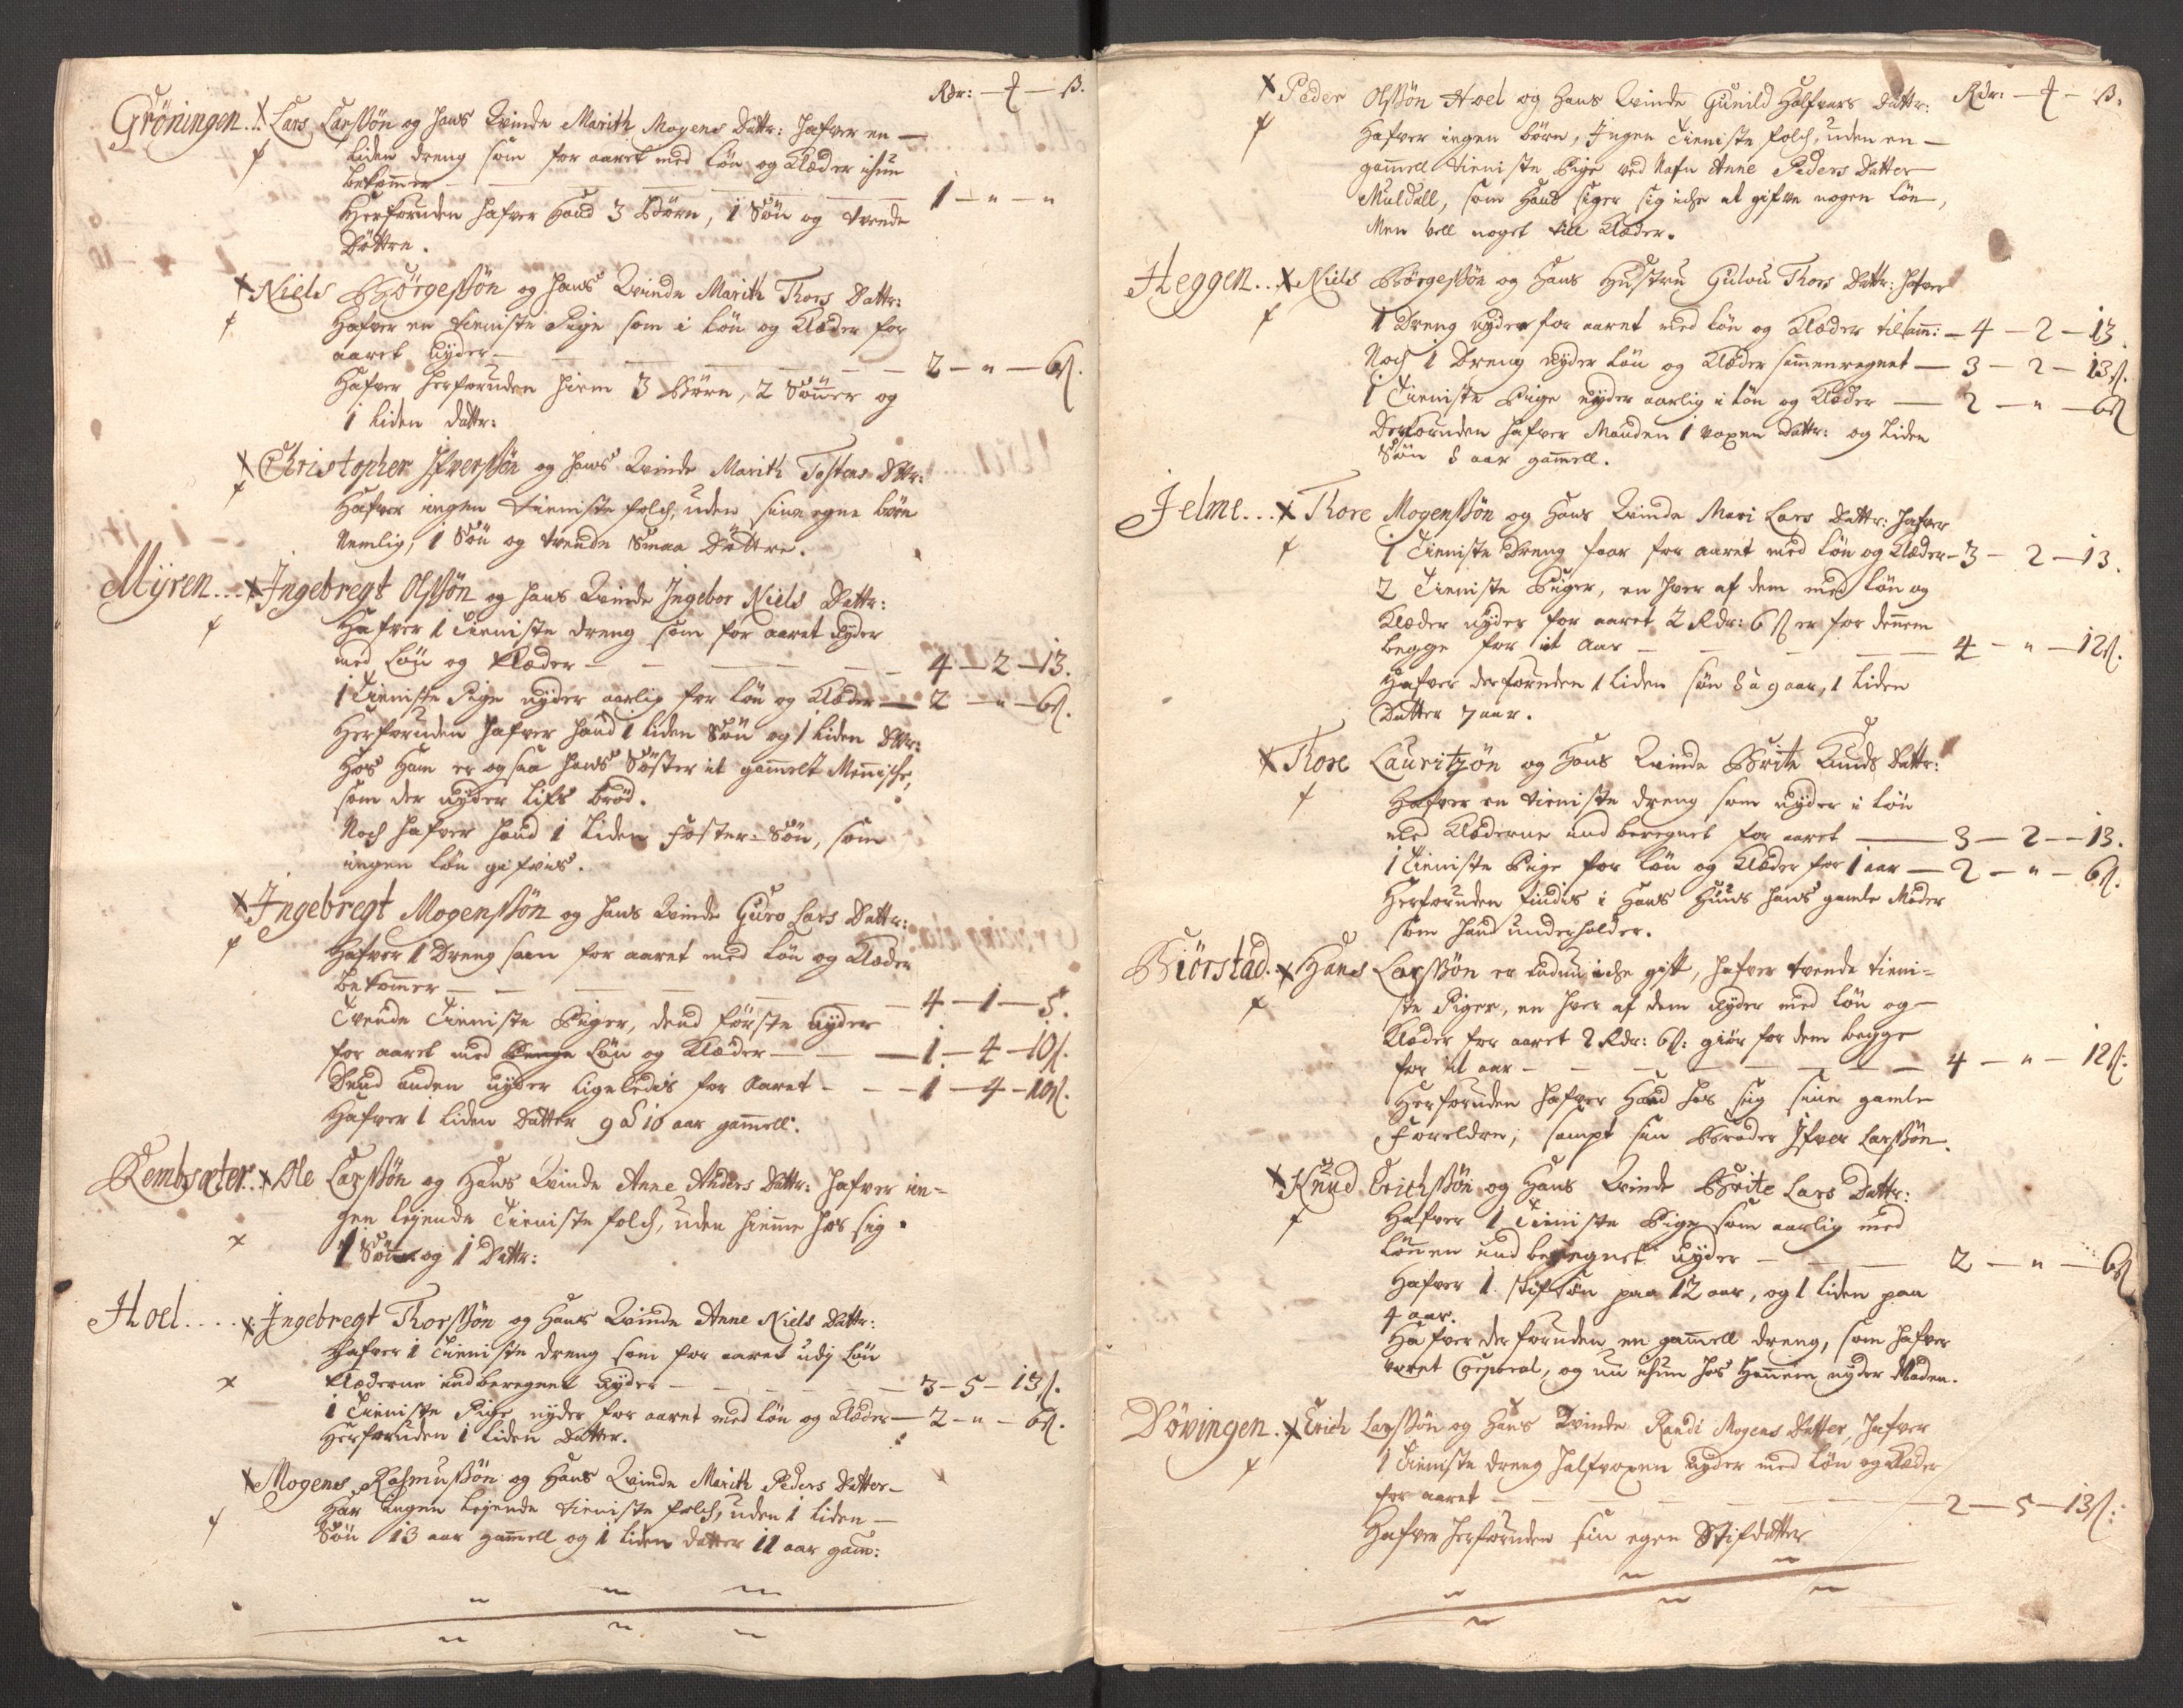 Rdr: — ₰ — ß.
Grøningen . . Lars Larssøn og hans Qvinde Marith Mogens Dattr: hafver en —
liden dreng som for aaret med løn og Klæder ichun
bekommer — — — 1 — " — "
Herforuden hafver hand 3 Børn, 1 Søn og tvende
Døttre.
Niels Børgessøn og hans Qvinde Marith Thors Dattr:
Hafver en tieniste Pige som i løn og Klæder for
aaret nyder — — — 2 — " — 6ß.
Hafver herforuden hiem 3 Børn, 2 Sønner og
1 liden dattr:
Christopher Ifverssøn og hans Qvinde Marith Tostens Dttr:
Hafver ingen tieniste folch, uden sine egne børn
Nemlig, 1 Søn og tvende Smaa Døttre.
Mÿren . . . Ingebregt Olssøn og hans Qvinde Ingebor Niels Dattr:
Hafver 1 tieniste dreng som for aaret nyder
med Løn og klæder — — — 4 — 2 — 13.
1 Tieniste Pige nyder aarlig for løn og Klæder — 2 — " — 6ß.
Herforuden hafver hand 1 liden Søn og 1 liden Dttr:
Hos ham er ogsaa hans Søster it gammelt Menniske,
som der nyder lifs brød.
Noch hafver hand 1 liden Foster-Søn, som
ingen løn gifves.
Ingebregt Mogenssøn og hans Qvinde Guro Lars Dattr:
Hafver 1 Dreng som for aaret med løn og Klæder
bekommer — — — 4 — 1 — 5.
Tvende Tieniste Piger, dend første nyder
for aaret med Løn og Klæder — — 1 — 4 — 10ß.
Dend anden nyder ligeledis for Aaret — — 1 — 4 — 10ß.
Hafver 1 liden Datter 9 à 10 aar gammell.
Rembsæter . . Ole Larssøn og Hans Qvinde Anne Anders Dattr: hafver in-
gen leiende Tieniste folch, uden hiemme hos sig
1 Søn og 1 Dattr:
Hoel . . . . Ingebregt Thorssøn og Hans Qvinde Anne Niels Dattr:
Hafver 1 Tieniste dreng som for aaret udj Løn
klæderne indberegnet nyder — — — 3 — 5 — 13ß.
1 Tieniste Pige nyder for aaret med løn og Klæder — 2 — " — 6ß.
Herforuden 1 liden Datter.
Mogens Rasmussøn og Hans Qvinde Marith Peders Datter —
Har ingen leiende tieniste folch, uden 1 liden —
Søn 13 aar gammell og 1 liden datter 11 aar gam:
Rdr: — ₰ — ß.
Peder Olssøn Hoel og Hans Qvinde Gunild Halfvars Dattr:
Hafver ingen børn, Ingen Tieniste folch, uden en —
gammell tieniste Pige ved Nafn Anne Peders Datter
Muldall, som Hand siger sig iche at gifve nogen løn,
Men vell noget till Klæder.
Heggen . . Niels Børgessøn og Hans Hustru Gulou Thors Dattr: hafver
1 Dreng nyder for aaret med løn og Klæder tilsam: — 4 — 2 — 13.
Noch 1 Dreng nyder løn og Klæder sammenregnet — 3 — 2 — 13ß.
1 Tieniste Pige nyder aarlig i løn og Klæder — 2 — " — 6ß
Derforuden hafver Manden 1 voxen dattr: og liden
Søn 8 aar gammell.
Jelme . . . Thore Mogenssøn og Hans Qvinde Mari Lars Dattr: hafver
1 Tieniste Dreng faar for aaret med løn og Klæder — 3 — 2 — 13.
2 Tieniste Piger, en hver af dem med løn og
Klæder nyder for aaret 2 Rdr: 6 ß er for dennem
begge for it aar — — — 4 — " — 12ß.
Hafver derforuden 1 liden søn 8 à 9 aar, 1 liden
Datter 7 aar.
Thore Lauritzøn og Hans Qvinde Brite Knuds Dattr:
Hafver en tieniste dreng som nyder i løn
med Klæderne indberegnet for aaret — 3 — 2 — 13.
1 Tieniste Pige for løn og Klæder for 1 aar — 2 — " — 6ß.
Herforuden findis i Hans Huus hans gamle Moder
som hand underholder.
Biørstad . Hans Larssøn er endnu iche gift, hafver tvende tieni-
ste Piger, en hver af dem nyder med løn og —
Klæder for aaret 2 Rdr: 6ß: giør for dem begge
for it aar — — — 4 — " — 12ß:
Herforuden hafver Hand hos sig sine gamle
Foreldre, sampt sin Broder Ifver Larssøn.
Knud Erichssøn og Hans Qvinde Brite Lars Dattr:
Hafver 1 Tieniste Pige som aarlig med
lønnen indberegnet nyder — — — 2 — " — 6ß
Hafver 1 stifsøn paa 12 aar, og 1 liden paa
4 aar.
Hafver derforuden en gammell dreng, som hafver
været Corporal, og nu ichun hos hannem nyder Maden.
Døvingen . Erich Larssøn og Hans Qvinde Randi Mogens Datter, hafver
1 Tieniste dreng halfvoxen nyder med løn og Klæder
for aaret — — — 2 — 5 — 13ß:
Hafver herforuden sin egen Stifdatter